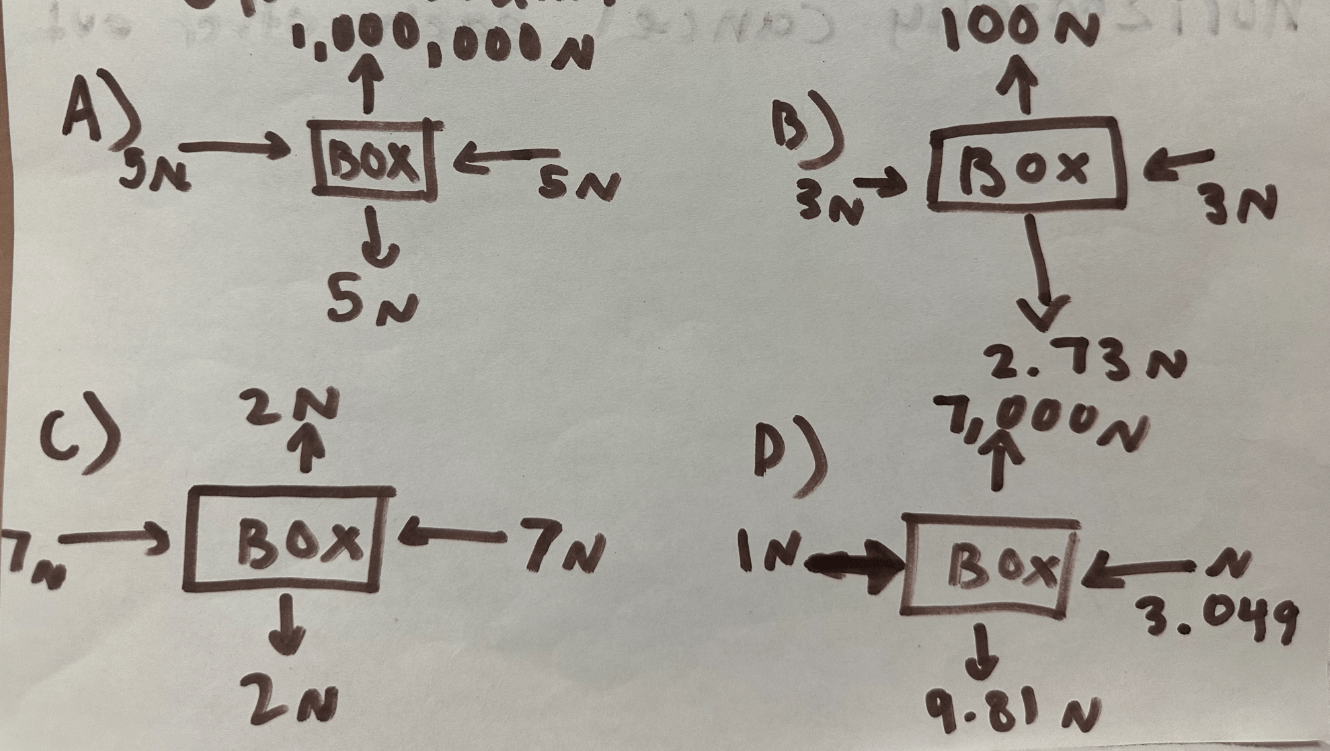 1,000,000N
A)
5N
BOX
5N
5N
100N
B)
3N
BOX
3N
2.73N
C)
2N
7N
BOX
7N
2N
D)
7,000N
1N
BOX
N
3.049
9.81N